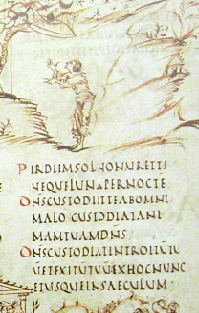 PERDIEMSOLNONURETTE
NEQUELUNAPERNOCTE
DNSCUSTODITTEABOMNI
MALO CUSTODIATANI
MAMTUAMDNS
DNSCUSTODIATINTROITUTU
UETEXITUTUUEXHOCNUNC
ETUSQUEINSAECULUM